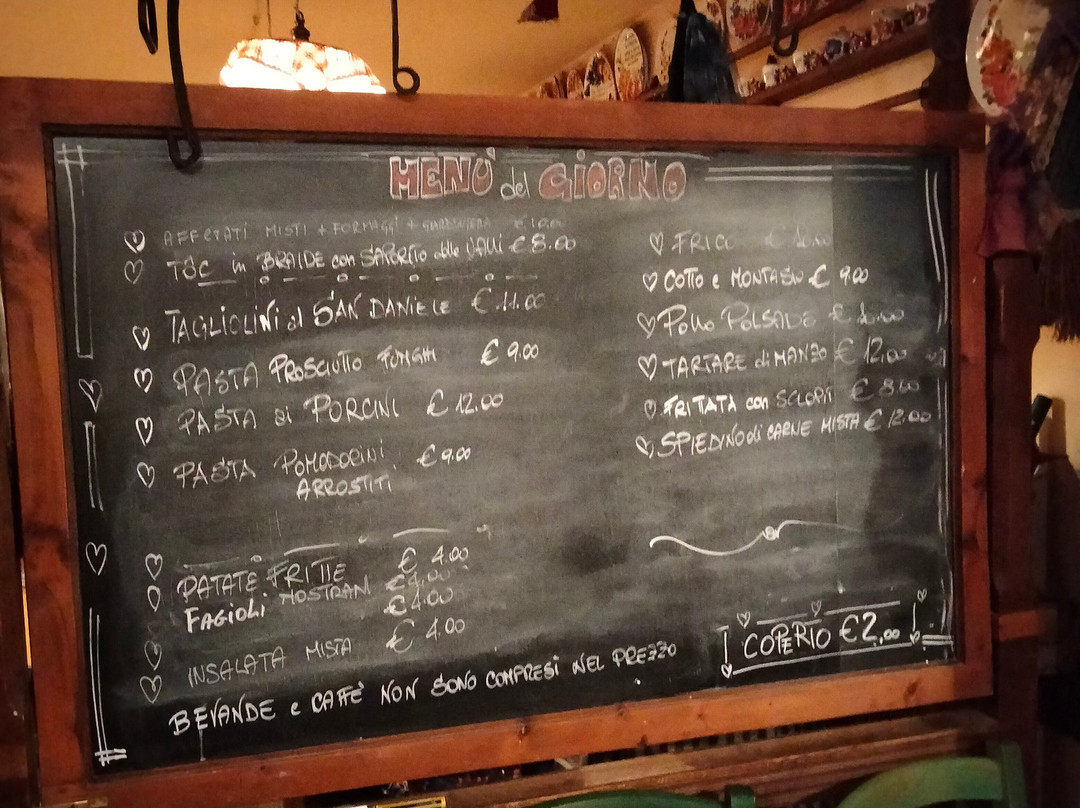 MENÙ del GIORNO
AFFETATI MISTI + FORMAGGI +
TÖC in BRAIDE con SAPORITO delle VALLI € 8.00
TAGLIOLINI al SAN DANIELE € 11.00
PASTA PROSCIUTTO FUNGHI € 9.00
PASTA ai PORCINI € 12.00
PASTA POMODORINI € 9.00
ARROSTITI
PATATE FRITTE € 4.00
FAGIOLI NOSTRANI € 4.00
€ 4.00
INSALATA MISTA € 4.00
BEVANDE e CAFFÈ NON SONO COMPRESI NEL PREZZO
FRICO €
COTTO e MONTASIO € 9.00
Pollo €
TARTARE di MANZO € 12.00
FRITATA con SCLOPIT € 8.00
SPIEDINO di CARNE MISTA € 12.00
COPERTO € 2,00